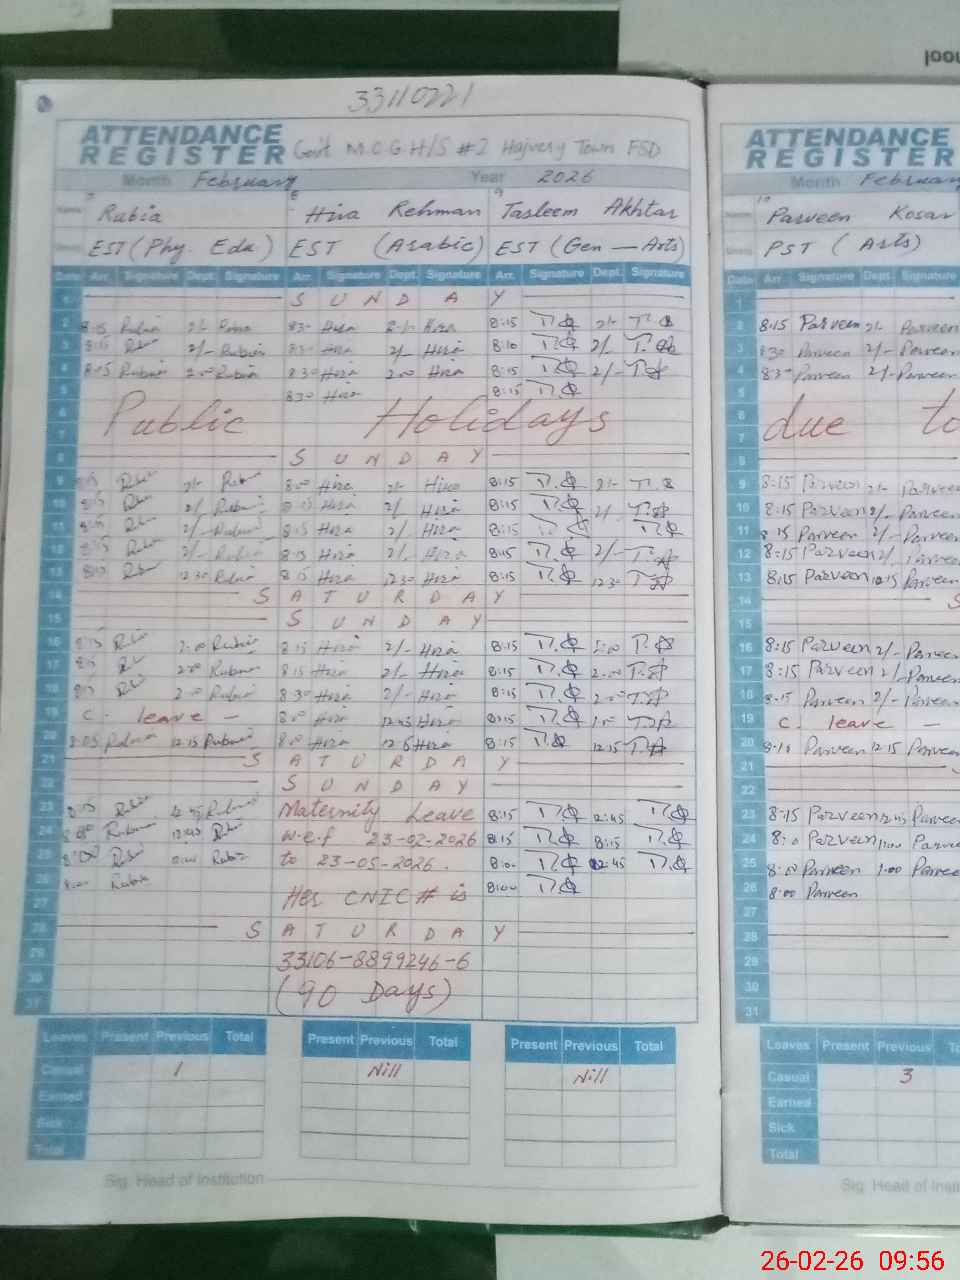 33110221
ATTENDANCE REGISTER Govt M.C.G.H/S #2 Hajvery Town FSD
Month February Year 2026
7 8 9
Name Rubia Hira Rehman Tasleem Akhtar
EST (Phy. Edu) EST (Arabic) EST (Gen — Arts)
Date Arr. Signature Dept. Signature Arr. Signature Dept. Signature Arr. Signature Dept. Signature
1 S U N D A Y
2 8:15 Rubia 2/- Rubia 8:30 Hira 2/- Hira 8:15 T.A 2/- T.A
3 8:15 Rubia 2/- Rubia 8:30 Hira 2/- Hira 8:10 T.A 2/- T.A
4 8:15 Rubia 2:00 Rubia 8:30 Hira 2:00 Hira 8:15 T.A 2/- T.A
5 8:30 Hira 8:15 T.A
6
7 Public Holidays
8 S U N D A Y
9 8:15 Rubia 2/- Rubia 8:00 Hira 2/- Hira 8:15 T.A 2/- T.A
10 8:15 Rubia 2/- Rubia 8:15 Hira 2/- Hira 8:15 T.A 2/- T.A
11 8:15 Rubia 2/- Rubia 8:15 Hira 2/- Hira 8:15 T.A T.A
12 8:15 Rubia 2/- Rubia 8:15 Hira 2/- Hira 8:15 T.A 2/- T.A
13 8:15 Rubia 12:30 Rubia 8:15 Hira 12:30 Hira 8:15 T.A 12:30 T.A
14 S A T U R D A Y
15 S U N D A Y
16 8:15 Rubia 2:00 Rubia 8:15 Hira 2/- Hira 8:15 T.A 2:00 T.A
17 8:15 Rubia 2:00 Rubia 8:15 Hira 2/- Hira 8:15 T.A 2:00 T.A
18 8:15 Rubia 2:00 Rubia 8:30 Hira 2/- Hira 8:15 T.A 2:00 T.A
19 C. leave — 8:00 Hira Hira 8:15 T.A 1:00 T.A
20 8:05 Rubia 12:15 Rubia 8:00 Hira Hira 8:15 T.A 12:15 T.A
21 S A T U R D A Y
22 S U N D A Y
23 8:15 Rubia 12:45 Rubia Maternity Leave 8:15 T.A 12:45 T.A
24 8:00 Rubia 12:45 Rubia w.e.f 23-02-2026 8:15 T.A 8:15 T.A
25 8:00 Rubia Rubia to 23-05-2026. 8:00 T.A 12:45 T.A
26 8:00 Rubia 8:00 T.A
27 Her CNIC # is
28 S A T U R D A Y
29 33106-8899246-6
30 (90 Days)
31
Leaves Present Previous Total Present Previous Total Present Previous Total
Casual 1 Nill Nill
Earned
Sick
Total
Sig. Head of Institution
ATTENDANCE REGISTER
Month February
10
Name Parveen Kosar
PST (Arts)
Date Arr. Signature Dept. Signature
1
2 8:15 Parveen 2/- Parveen
3 8:30 Parveen 2/- Parveen
4 8:30 Parveen 2/- Parveen
5
6 due to
7
8
9 8:15 Parveen 2/- Parveen
10 8:15 Parveen 2/- Parveen
11 8:15 Parveen 2/- Parveen
12 8:15 Parveen 2/- Parveen
13 8:15 Parveen 12:15 Parveen
14 S
15
16 8:15 Parveen 2/- Parveen
17 8:15 Parveen 2/- Parveen
18 8:15 Parveen 2/- Parveen
19 C. leave —
20 8:10 Parveen 12:15 Parveen
21
22
23 8:15 Parveen 12:45 Parveen
24 8:10 Parveen 1:00 Parveen
25 8:00 Parveen 1:00 Parveen
26 8:00 Parveen
27
28
29
30
31
Leaves Present Previous
Casual 3
Earned
Sick
Total
Sig. Head of
26-02-26 09:56